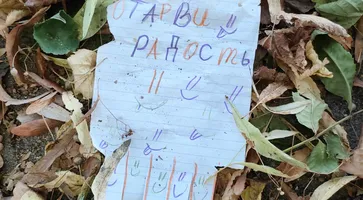 ОТАРВИ
РАДОСТЬ
!!